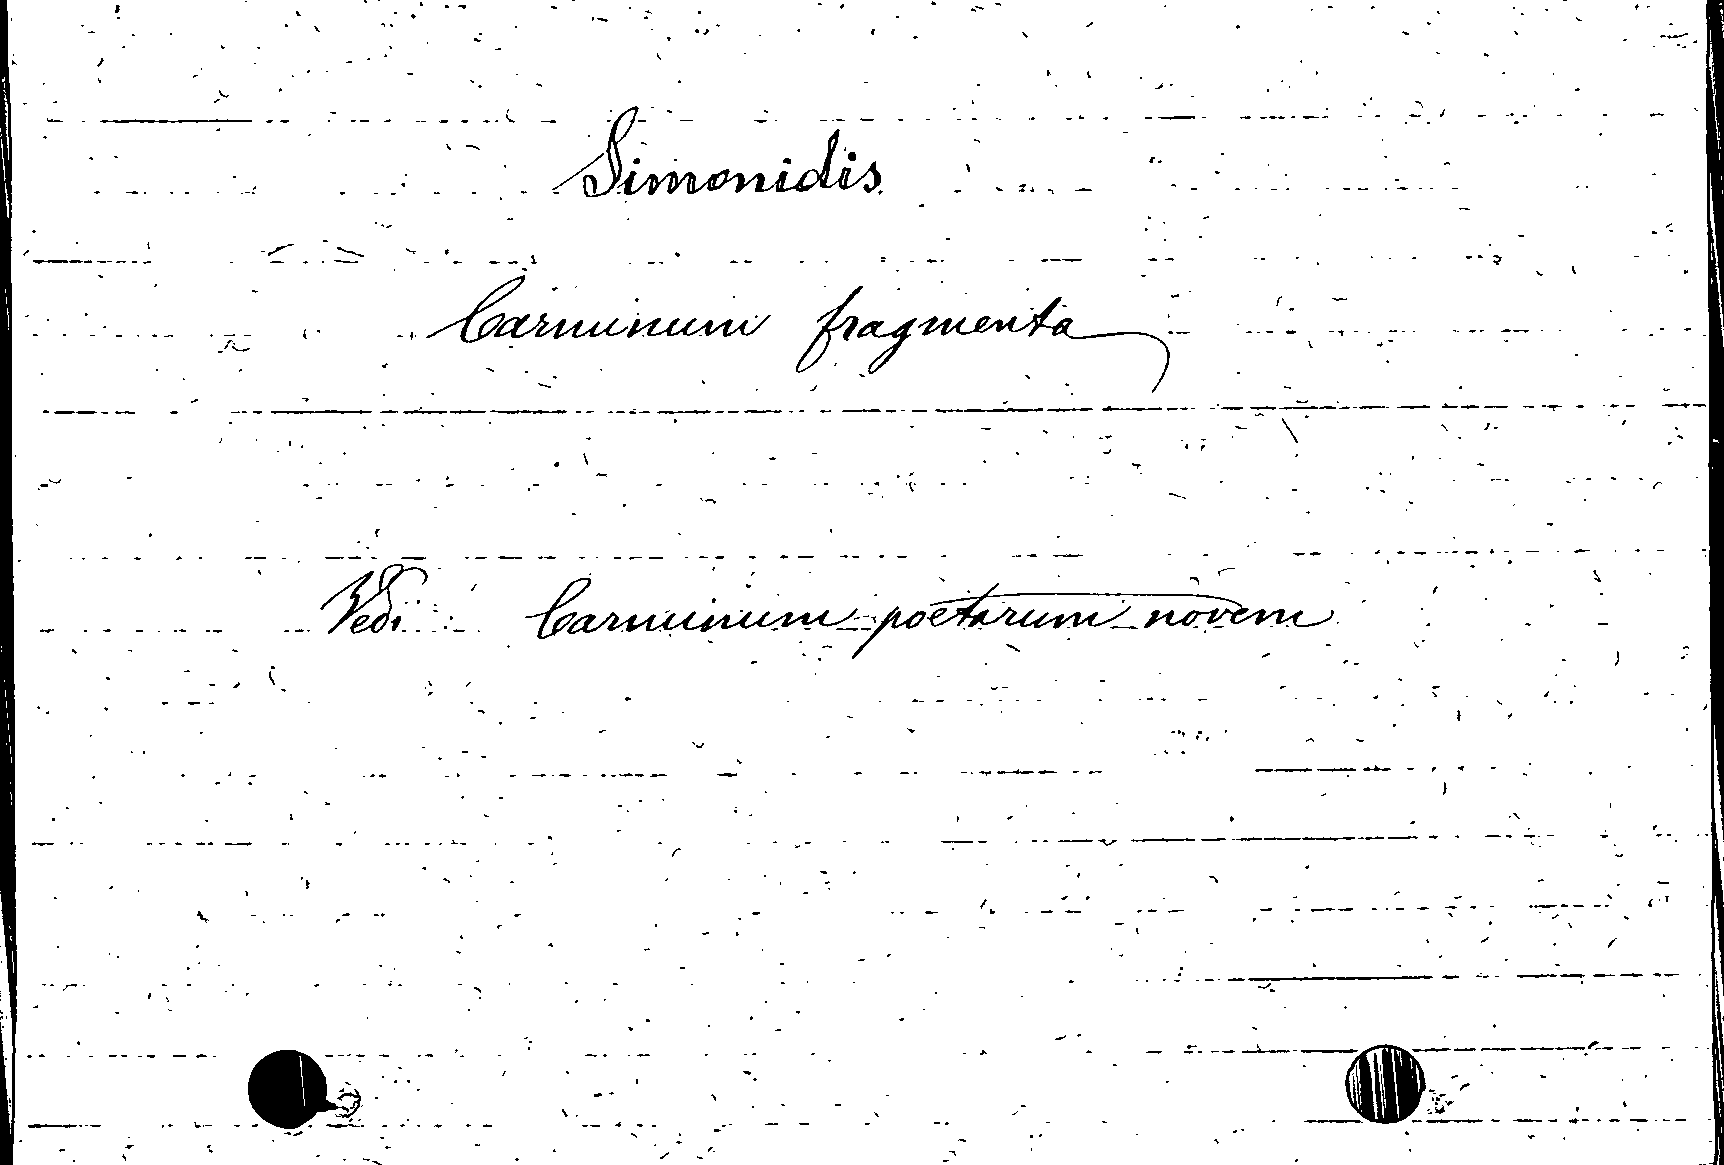 Simonidis
Carminum fragmenta
Vedi: Carminum poetarum novem